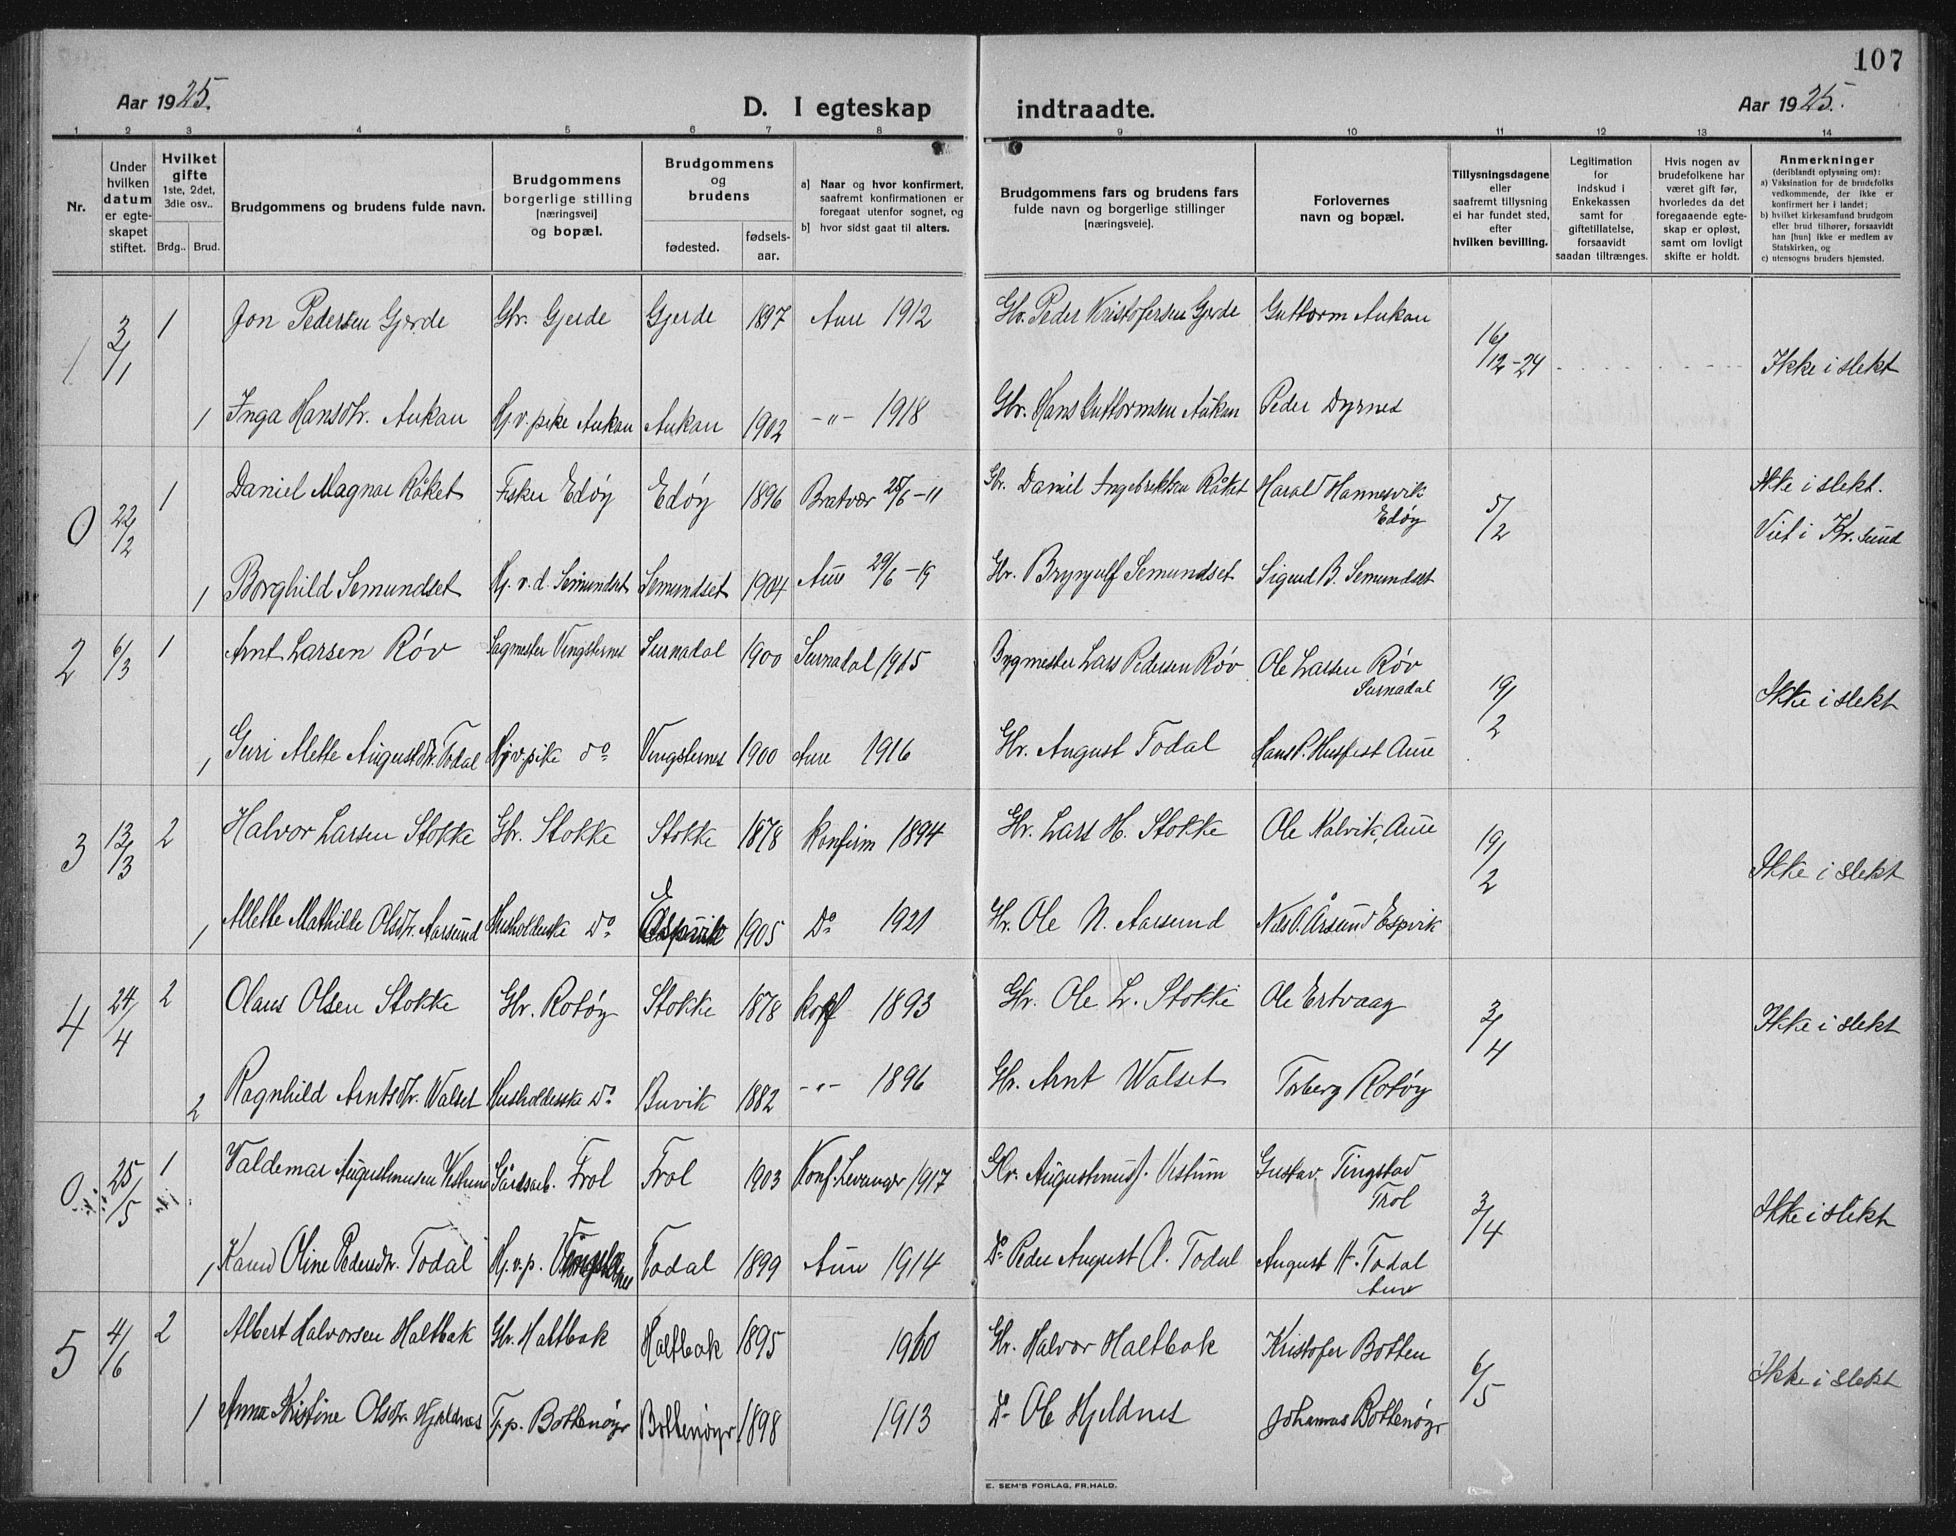 107
Aar 1925. D. I egteskap indtraadte. Aar 1925.
1 2 3 4 5 6 7 8 9 10 11 12 13 14
Nr.
Under hvilken datum er egteskapet stiftet.
Hvilket gifte 1ste, 2det, 3die osv..
Brdg.. Brud.
Brudgommens og brudens fulde navn.
Brudgommens borgerlige stilling [næringsvei] og bopæl.
Brudgommens og brudens
fødested. fødsels-aar.
a] Naar og hvor konfirmert, saafremt konfirmationen er foregaat utenfor sognet, og
b] hvor sidst gaat til alters.
Brudgommens fars og brudens fars fulde navn og borgerlige stillinger [næringsveie].
Forlovernes navn og bopæl.
Tillysningsdagene eller saafremt tillysning ei har fundet sted, efter hvilken bevilling.
Legitimation for indskud i Enkekassen samt for giftetillatelse, forsaavidt saadan tiltrænges.
Hvis nogen av brudefolkene har været gift før, hvorledes da det foregaaende egteskap er opløst, samt om lovligt skifte er holdt.
Anmerkninger (deriblandt oplysning om):
a) Vaksination for de brudefolks vedkommende, der ikke er konfirmert her i landet;
b) hvilket kirkesamfund brudgom eller brud tilhører, forsaavidt han [hun] ikke er medlem av Statskirken, og
c) utensogns bruders hjemsted.
1 3/1 1 Jon Pedersen Gjerde Gbr. Gjerde Gjerde 1897 Aure 1912 Gbr. Peder Kristofersen Gjerde Guttorm Aukan 16/12-24 Ikke i slekt
1 Inga Hansdtr. Aukan Hj.v. pike Aukan Aukan 1902 -"- 1918 Gbr. Hans Guttormsen Aukan Peder Dyrnes
0 22/2 1 Daniel Magnar Råket Fisker Edøy Edøy 1896 Bratvær 25/6-11 Gbr. Daniel Ingebriktsen Råket Harald Hannesvik Edøy 5/2 Ikke i slekt. Viet i Kr.sund
1 Borghild Semundset Hj.v.d. Semundset Semundset 1904 Aure 29/6-19 Gbr. Brynjulf Semundset Sigurd B. Semundset
2 6/3 1 Arnt Larsen Røv Sagmester Vingsternes Surnadal 1900 Surnadal 1915 Bygmester Lars Pedersen Røv Ole Larsen Røv Surnadal 19/2 Ikke i slekt
1 Guri Alette Augustdtr. Todal Hj.v. pike do Vingsternes 1900 Aure 1916 Gbr. August Todal Hans P. Husfest Aure
3 13/3 2 Halvor Larsen Stokke Gbr. Stokke Stokke 1878 Konfirm 1894 Gbr. Lars H. Stokke Ole Kalvik, Aure 19/2 Ikke i slekt
1 Alette Mathilde Olsdtr. Aarsund Husholderske Do Espvik 1905 Do 1921 Gbr. Ole N. Aarsund Nils O. Årsund Espvik
4 24/4 2 Olaus Olsen Stokke Gbr. Rotøy Stokke 1878 Konf 1893 Gbr. Ole L. Stokke Ole Ertvaag 3/4 Ikke i slekt
2 Ragnhild Arntsdtr. Walset Husholderske Do Buvik 1882 -"- 1896 Gbr. Arnt Walset Torberg Rotøy
0 25/5 1 Valdemar Augustinusen Vestum Gårdsarb. Frol Frol 1903 Konf. Levanger 1917 Gbr. Augustinus J. Vestum Gustav Tingstad Frol 3/4 Ikke i slekt
1 Karen Oline Pedersdtr. Todal Hj.v.p. Vingsternes Todal 1899 Aure 1914 Do Peder August A. Todal August H. Todal Aure
5 4/6 2 Albert Halvorsen Haltbak Gbr. Haltbak Haltbak 1895 1910 Gbr. Halvor Haltbak Kristofer Botten 6/5 Ikke i slekt
1 Anna Kristine Olsdtr. Hjeldnes T.p. Bottenøyr Bottenøyr 1898 1913 Do Ole Hjeldnes Johannes Bottenøyr
E. SEM'S FORLAG, FR.HALD.